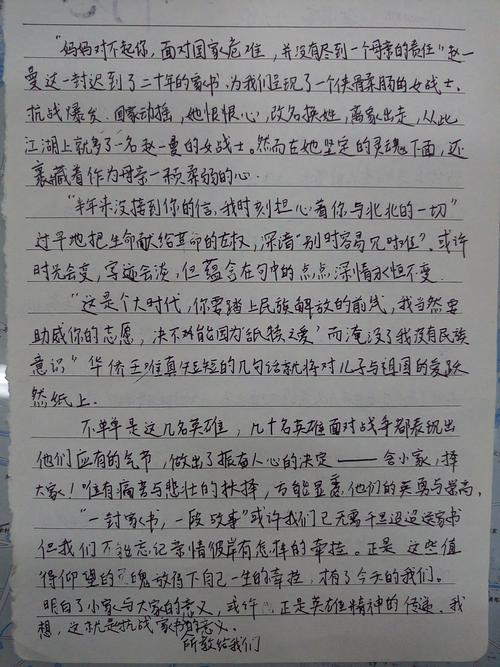 “妈妈对不起你，面对国家危难，并没有尽到一个母亲的责任”赵一
曼这一封迟到了二十年的家书，为我们呈现了一个侠骨柔肠的女战士。
抗战爆发，国家动摇，她恨恨心，改名换姓，离家出走，从此
江湖上就多了一名赵一曼的女战士。然而在她坚定的灵魂下面，还
裹藏着作为母亲一颗柔弱的心.
“半年来没接到你的信，我时刻担心着你与北北的一切”
过早地把生命献给革命的左权，深谙“别时容易见时难”.或许
时光会变，字迹会淡，但蕴含在句中的点点深情永恒不变.
“这是个大时代，你要踏上民族解放的前线，我当然要
助成你的志愿，决不能因为‘舐犊之爱’而淹没了我没有民族
意识”华侨王唯真短短的几句话就将对儿子与祖国的爱跃
然纸上.
不单单是这几名英雄，几十名英雄面对战争都表现出
他们应有的气节，做出了振奋人心的决定——舍小家，择
大家！唯有痛苦与悲壮的抉择，方能显衷他们的英勇与崇高。
“一封家书，一段故事”或许我们已无需千里迢迢送家书
但我们不能忘记亲情彼岸有怎样的牵挂。正是这些值
得仰望的魂放下自己一生的牵挂，换有了今天的我们。
明白了小家与大家的意义，或许，正是英雄精神的传递.我
想，这就是抗战家书所教给我们的意义.